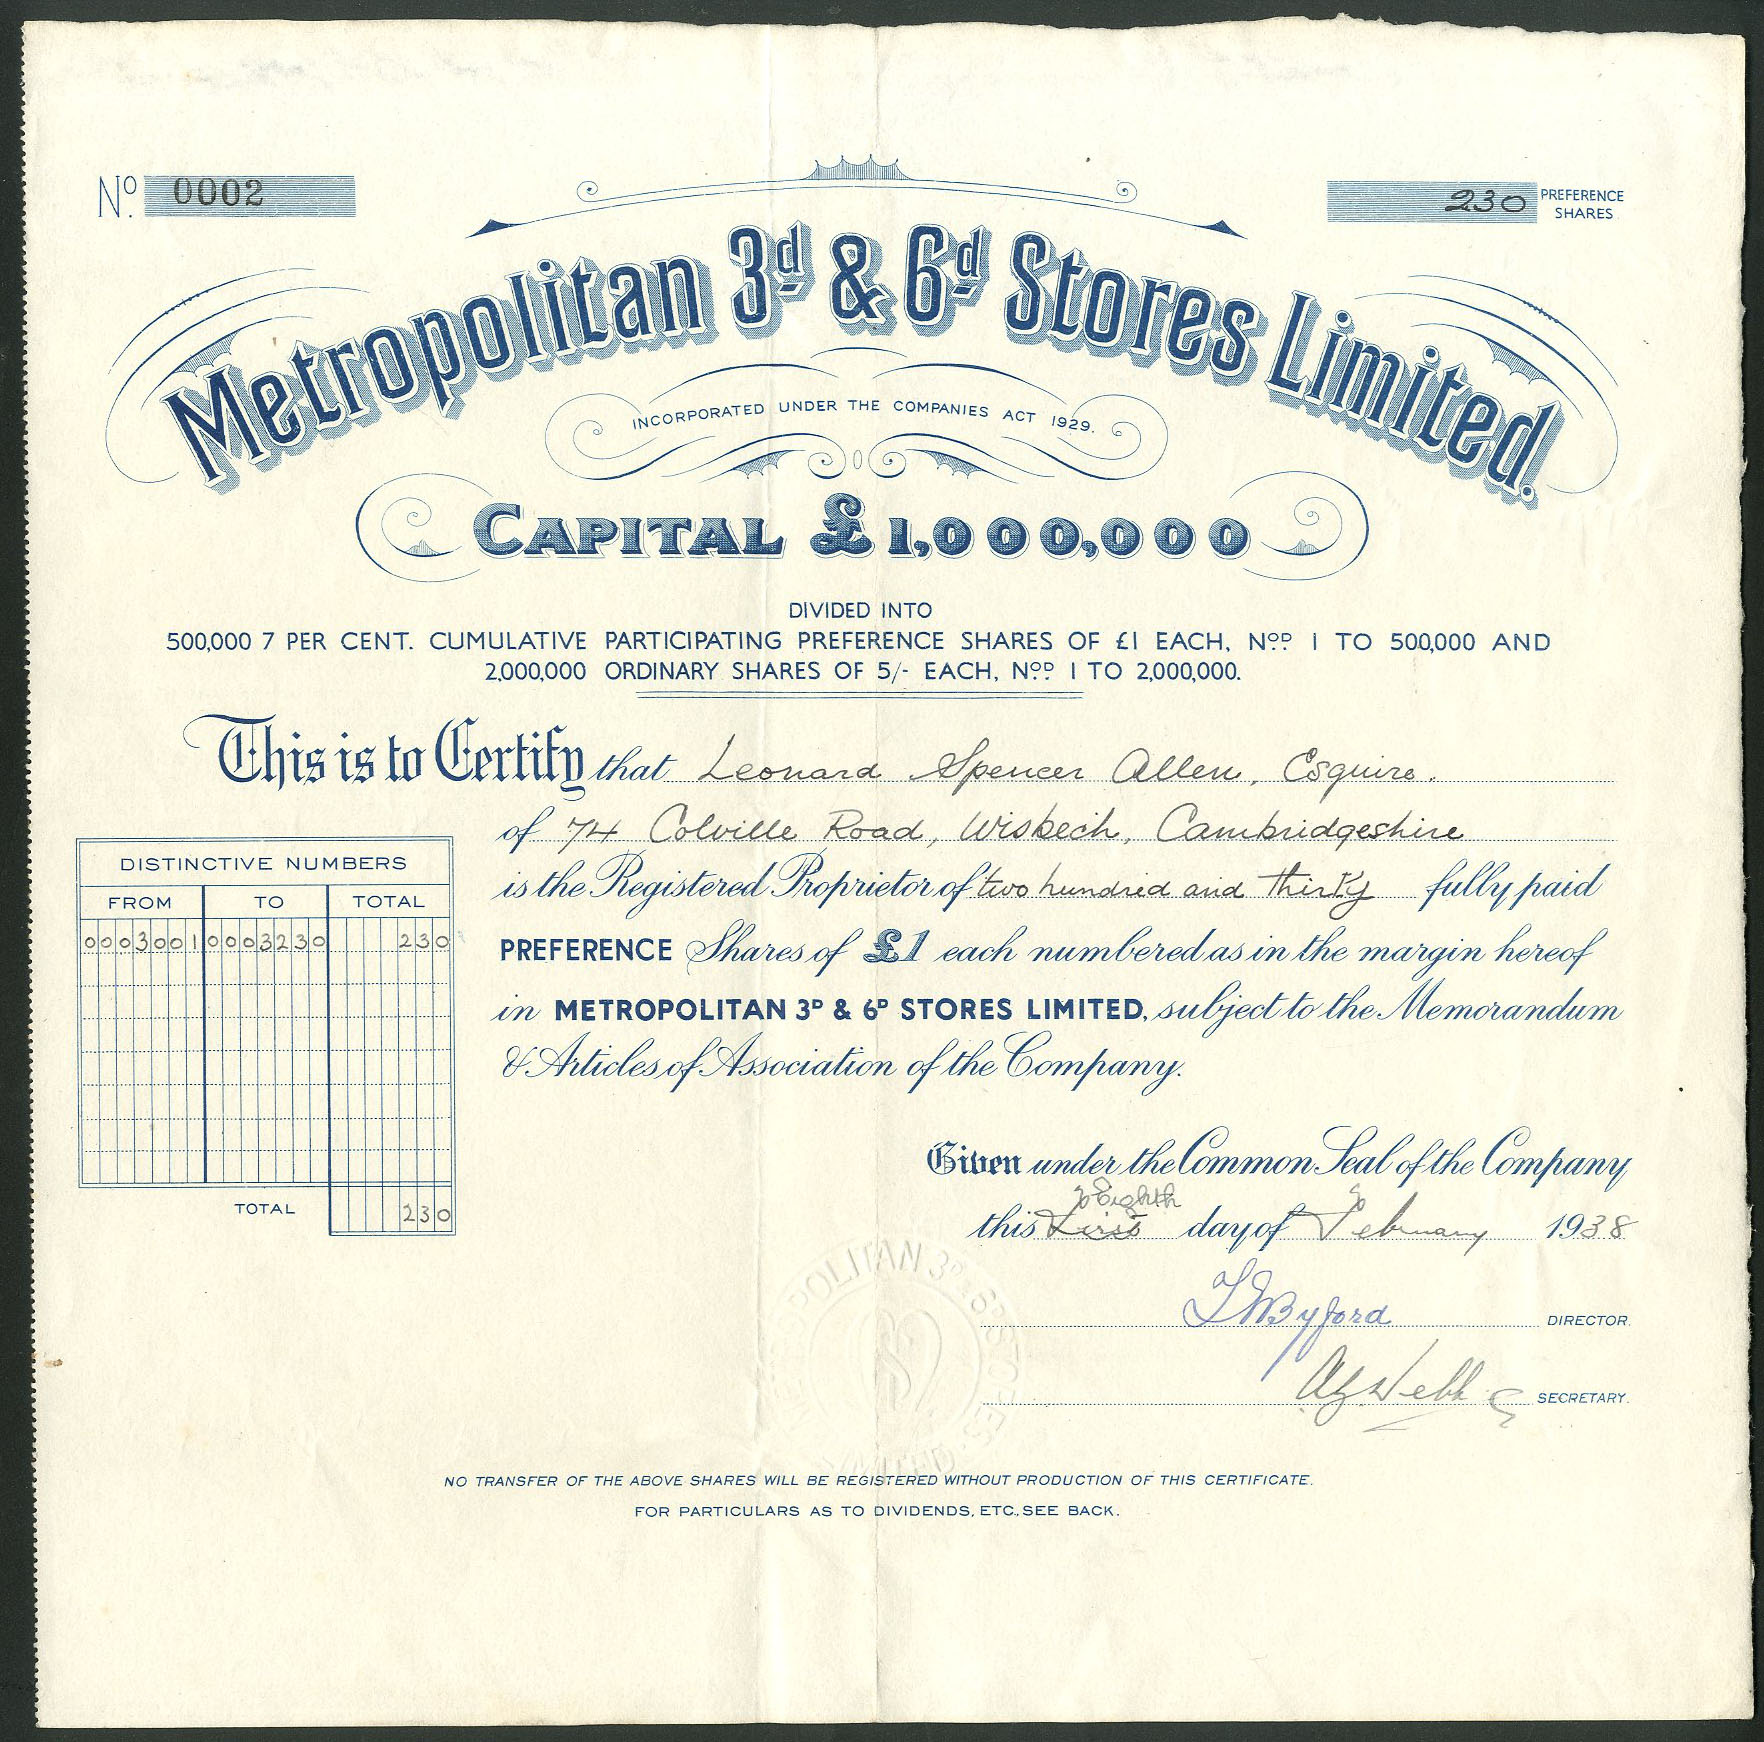 Nº 0002
230 PREFERENCE
SHARES
Metropolitan 3d & 6d Stores Limited.
INCORPORATED UNDER THE COMPANIES ACT 1929.
CAPITAL £1,000,000
DIVIDED INTO
500,000 7 PER CENT. CUMULATIVE PARTICIPATING PREFERENCE SHARES OF £1 EACH, Nos. 1 TO 500,000 AND
2,000,000 ORDINARY SHARES OF 5/- EACH, Nos. 1 TO 2,000,000.
This is to Certify that Leonard Spencer Allen, Esquire.
of 74 Colville Road, Wisbech, Cambridgeshire
is the Registered Proprietor of two hundred and thirty fully paid
PREFERENCE Shares of £1 each numbered as in the margin hereof
in METROPOLITAN 3D & 6D STORES LIMITED, subject to the Memorandum
& Articles of Association of the Company.
DISTINCTIVE NUMBERS
FROM TO TOTAL
0003001 0003230 230
TOTAL 230
Given under the Common Seal of the Company
Eighth
this First day of February 1938
Byford DIRECTOR.
Webb SECRETARY.
NO TRANSFER OF THE ABOVE SHARES WILL BE REGISTERED WITHOUT PRODUCTION OF THIS CERTIFICATE.
FOR PARTICULARS AS TO DIVIDENDS, ETC., SEE BACK.